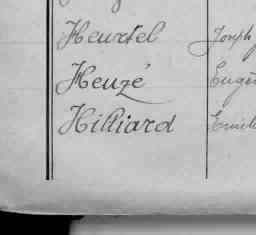 Heurtel Joseph
Heuzé Eugè
Hilliard Emile